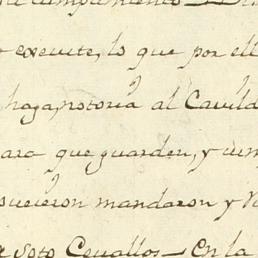 cumplimiento
execute, lo que por ell
haga notoria al Cavild
ara que guarden, y cum
sieron mandaron y
Soto Cevallos — En la